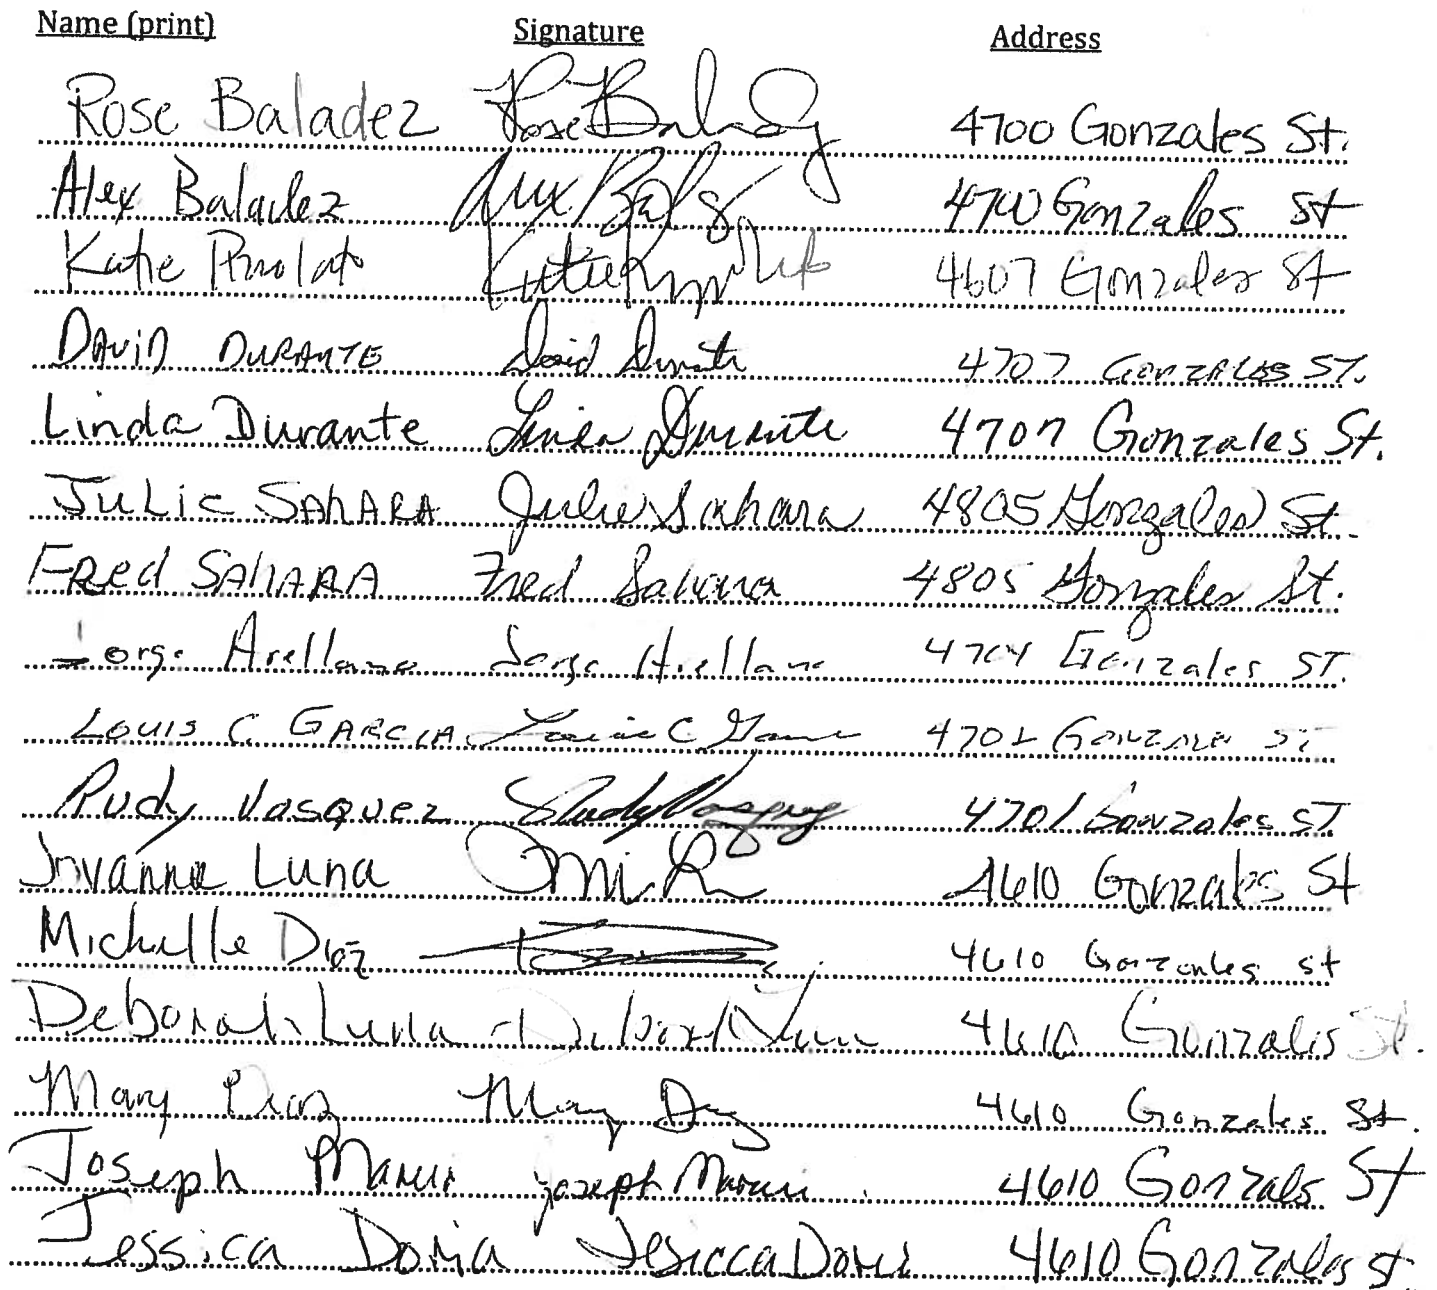 Name (print) Signature Address
Rose Baladez Rose Balady 4700 Gonzales St.
Alex Baladez Alex 4700 Gonzales St
Katie Katie 4607 Gonzales St
DAVID DURANTE David Durante 4707 GONZALES ST.
Linda Durante Linda Durante 4707 Gonzales St.
JULIE SAHARA Julie Sahara 4805 Gonzales St.
FRed SAhARA Fred Sahara 4805 Gonzales St.
Jorge Arellano Jorge Arellano 4704 Gonzales ST.
LOUIS C. GARCIA Louis C 4702 GONZALES ST
Rudy Vasquez Rudy Vasquez 4701 Gonzales ST
Jovanna Luna 4610 Gonzales St
Michelle Diaz 4610 Gonzales st
Deborah Luna Deborah Luna 4610 Gonzales St.
Mary Diaz Mary Diaz 4610 Gonzales St.
Joseph joseph 4610 Gonzals St
Jessica Doria Jesicca 4610 Gonzales St.